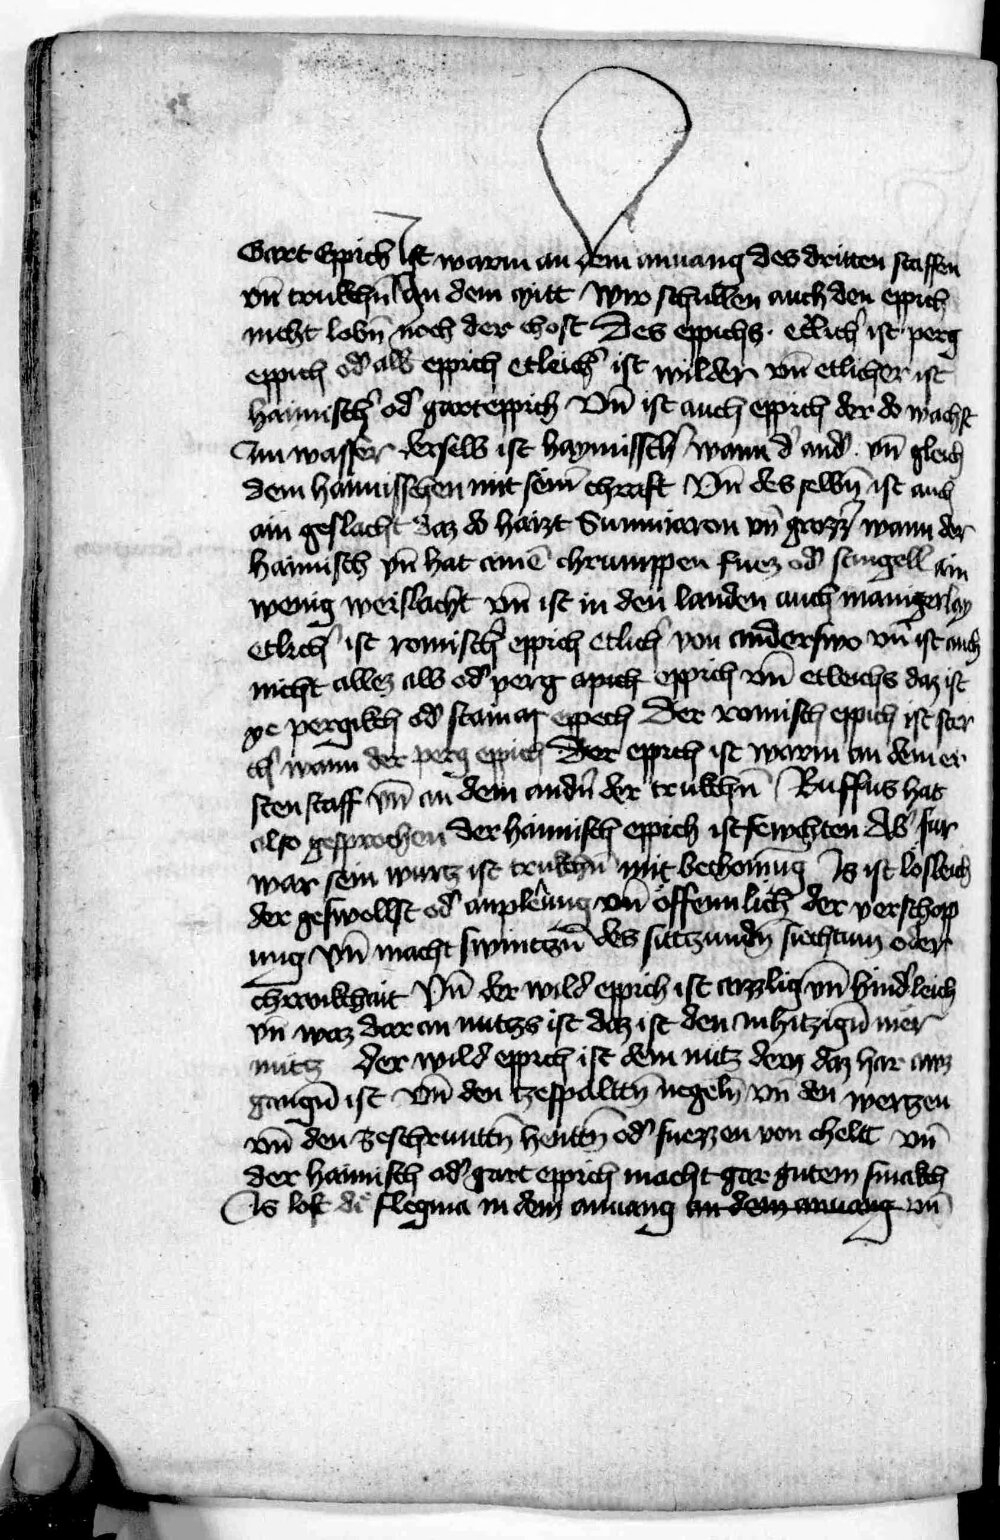 Gart Eppich Ist warm an dem anuang des dritten staffen
vn̄ trukchn̄ An dem mitt Wir schullen auch den eppich
nicht lobn̄ noch der chost Des eppichs · etlich' ist perg
eppich od' alb eppich etleich' ist wilder vn̄ etlicher ist
haimisch' od' garteppich Vn̄ ist auch eppich der do wachst
Im wasser derselb ist haymissch' wann d' and' · vn̄ gleich
dem haimisschen mit seim̄ chrafft Vn̄ des selbn̄ ist auch
ain geslacht daz do haizt Summiaron vn̄ grozz' wann der
haimisch vn̄ hat ainē chrumppen fuez od' stingell ain
wenig weislacht vn̄ ist in den landen auch manigerlay
etlich' ist romisch' eppich etlich' von anderswo vn̄ ist auch
nicht allez alb od' perg apich eppich vn̄ etleichs daz ist
ye pergikch od' stainar eppech Der romisch eppich ist ster
ch' wann der perg eppich Der eppich ist warm an dem er
sten staff vn̄ an dem andn̄ der trukchn̄ Ruffus hat
also gesprochen der haimisch eppich ist fewchten Ab' fur
war sein wurtz ist trukchn̄ mit bechomūg Is ist losleich
der geswollst od' anpleūng vn̄ offennlich der verschopp
ung vn̄ macht swintzn̄ des sittzundn̄ siechtum oder
chrankhait Vn̄ der wild' eppich ist arzzlig vn̄ hind'leich
vn̄ waz dar an nutzs ist daz ist den inhitzign̄ mer
nutz Der wild' eppich ist dem nutz dem daz har aus
gangn̄ ist vn̄ den tzespalttn̄ negeln̄ vn̄ den wertzen
vn̄ den Zeschrunttn̄ henttn̄ od' fuezzen von cheltt vn̄
der haimisch od' gart eppich macht gar gutem smakch
Is lost dē flegma in dem anuang an dem anuang vn̄